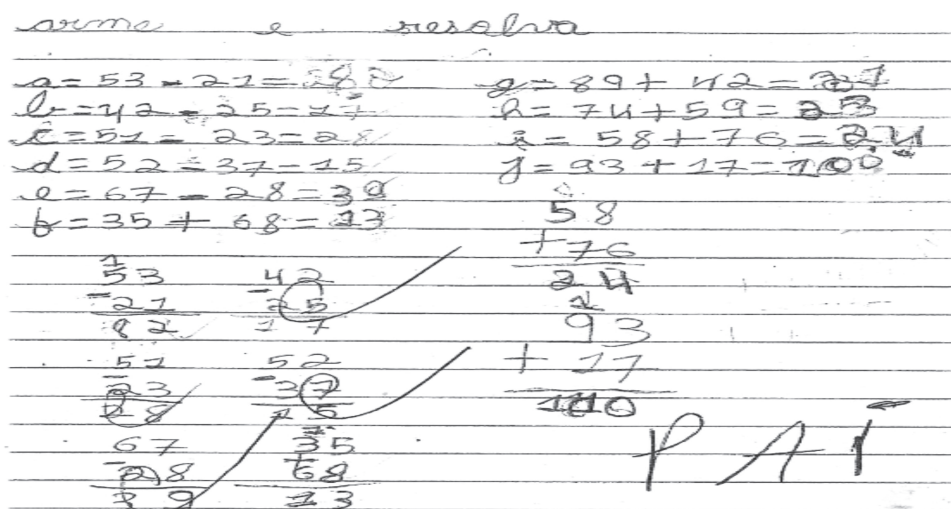 arme e resolva
a = 53 - 21 = 82
b = 42 - 25 = 17
c = 51 - 23 = 28
d = 52 - 37 = 15
e = 67 - 28 = 39
f = 35 + 68 = 13
g = 89 + 42 = 21
h = 74 + 59 = 23
i = 58 + 76 = 24
j = 93 + 17 = 100
53
- 21
82
42
- 25
17
51
- 23
28
52
- 37
15
67
- 28
39
35
+ 68
13
58
+ 76
24
93
+ 17
PAI